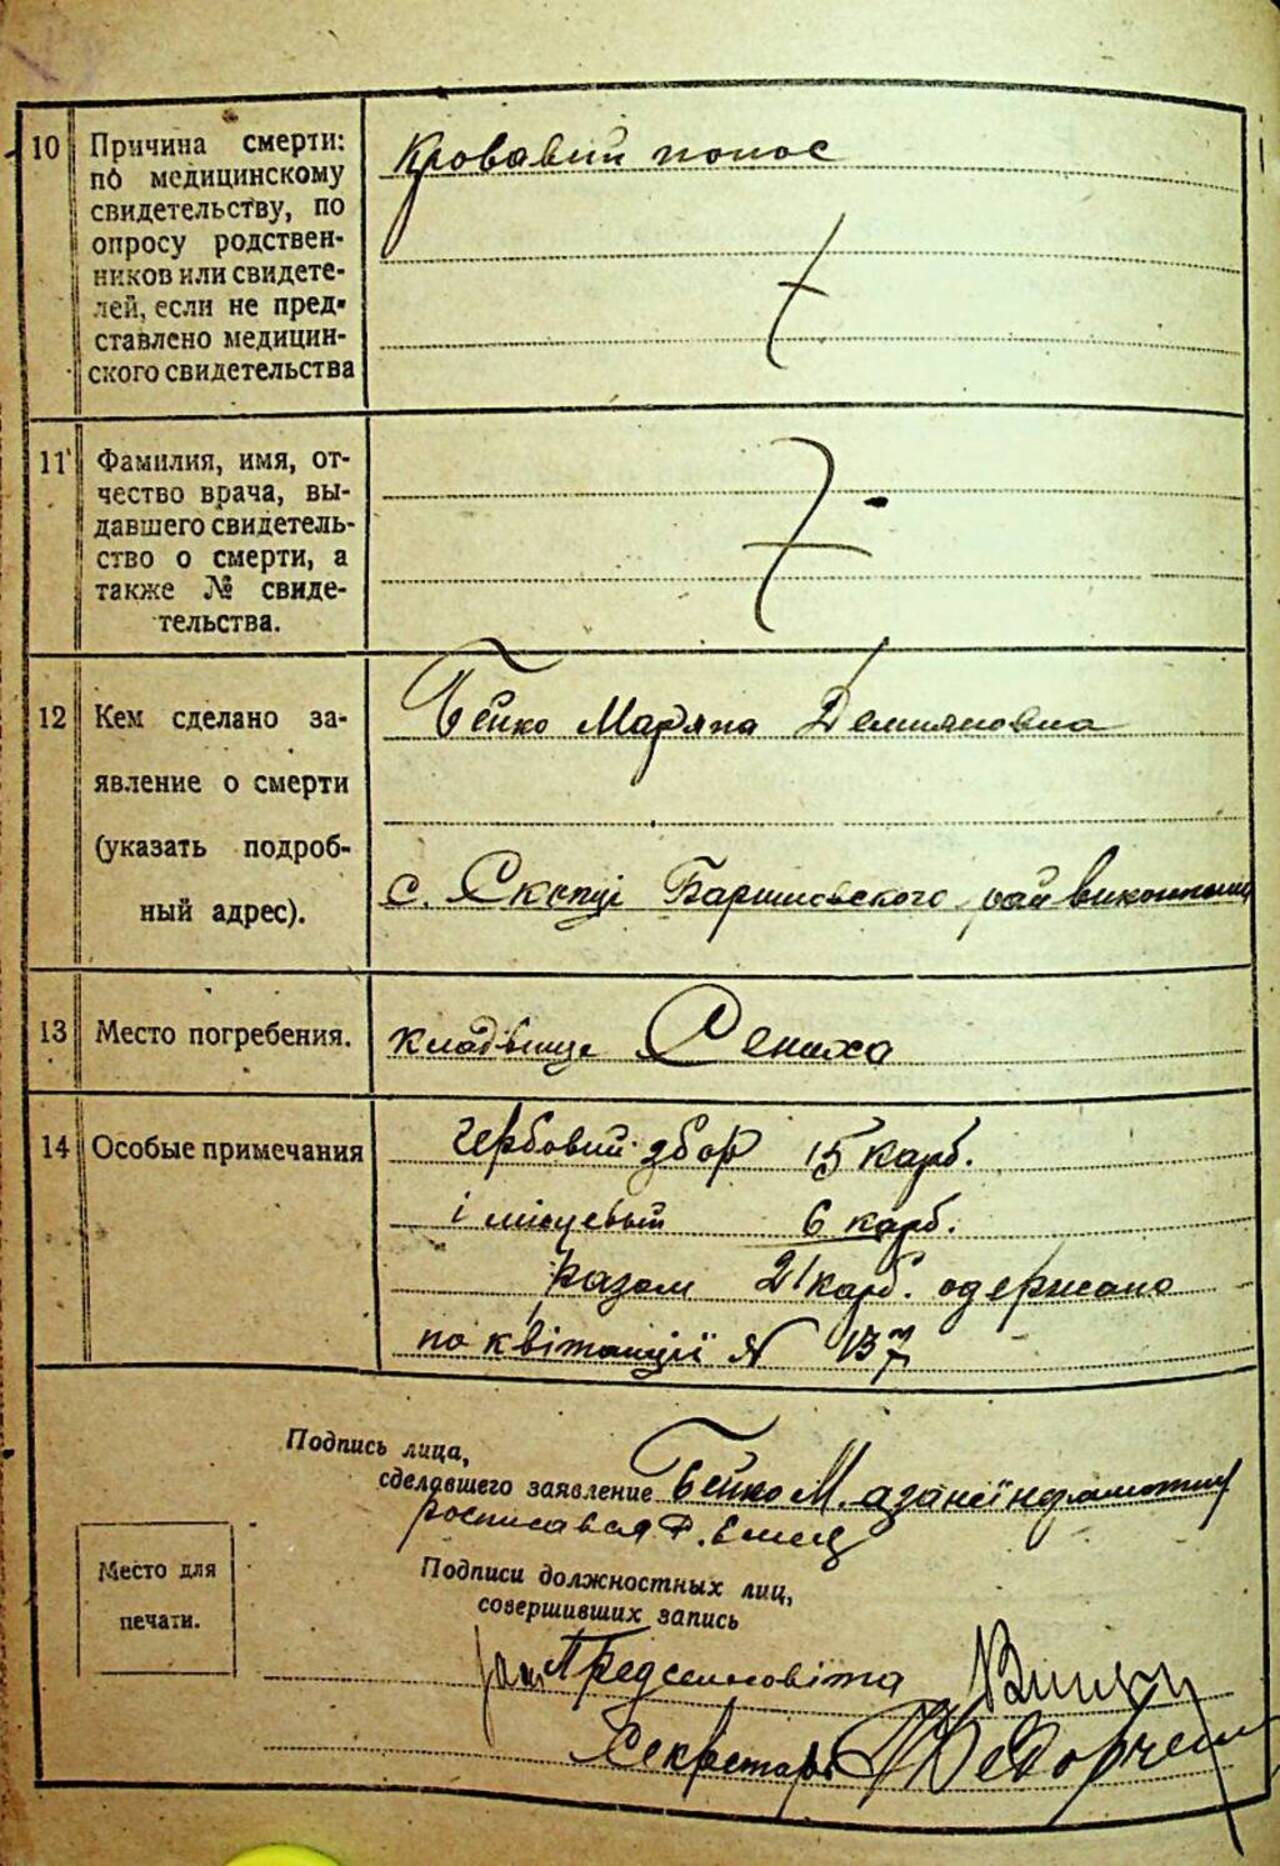 10 Причина смерти:
по медицинскому
свидетельству, по
опросу родствен-
ников или свидете-
лей, если не пред-
ставлено медицин-
ского свидетельства
Кровавий понос
11 Фамилия, имя, от-
чество врача, вы-
давшего свидетель-
ство о смерти, а
также № свиде-
тельства.
12 Кем сделано за-
явление о смерти
(указать подроб-
ный адрес).
Бейко Маряна Демяновна
с. Баришовского
13 Место погребения.
кладвище Сениха
14 Особые примечания
гербовий збор 15 карб.
і місцевый 6 карб.
Разом 21 карб. одержано
по квітанції № 137
Подпись лица,
сделавшего заявление Бейко М. а за неї
росписався
Место для
печати.
Подписи должностных лиц,
совершивших запись
Секретарь